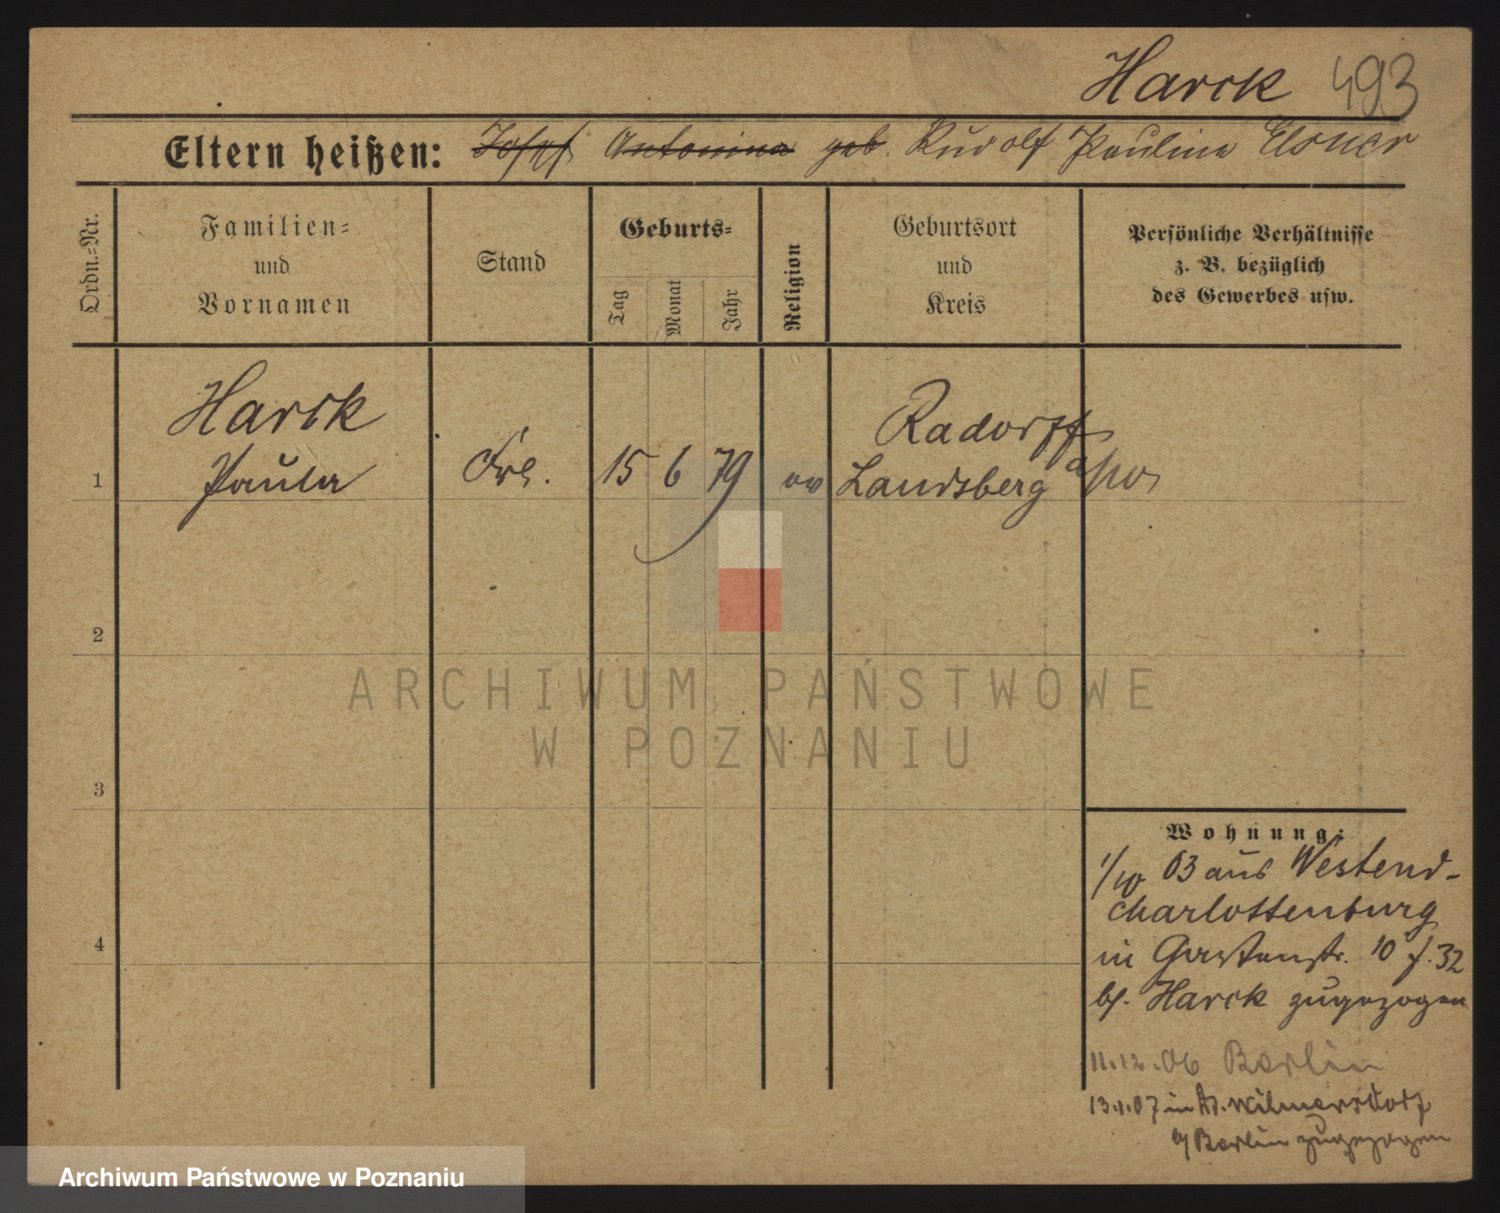 Harck 493
Eltern heißen: Josef Antonina geb. Rudolf Pauline Elsner
Ordn.=Nr.
Familien=
und
Vornamen
Stand
Geburts=
Tag
Monat
Jahr
Religion
Geburtsort
und
Kreis
Persönliche Verhältnisse
z. B. bezüglich
des Gewerbes usw.
Harck
Radorff
1 Paula Frl. 15 6 79 ev Landsberg
2
3
4
ARCHIWUM PAŃSTWOWE
W POZNANIU
Wohnung:
1/10 03 aus Westend-
Charlottenburg
in Gartenstr. 10 f. 32
bf. Harck zugezogen
11.12.06 Berlin
13.1.07 in Dt. Wilmersdorf
b/ Berlin zugezogen
Archiwum Państwowe w Poznaniu